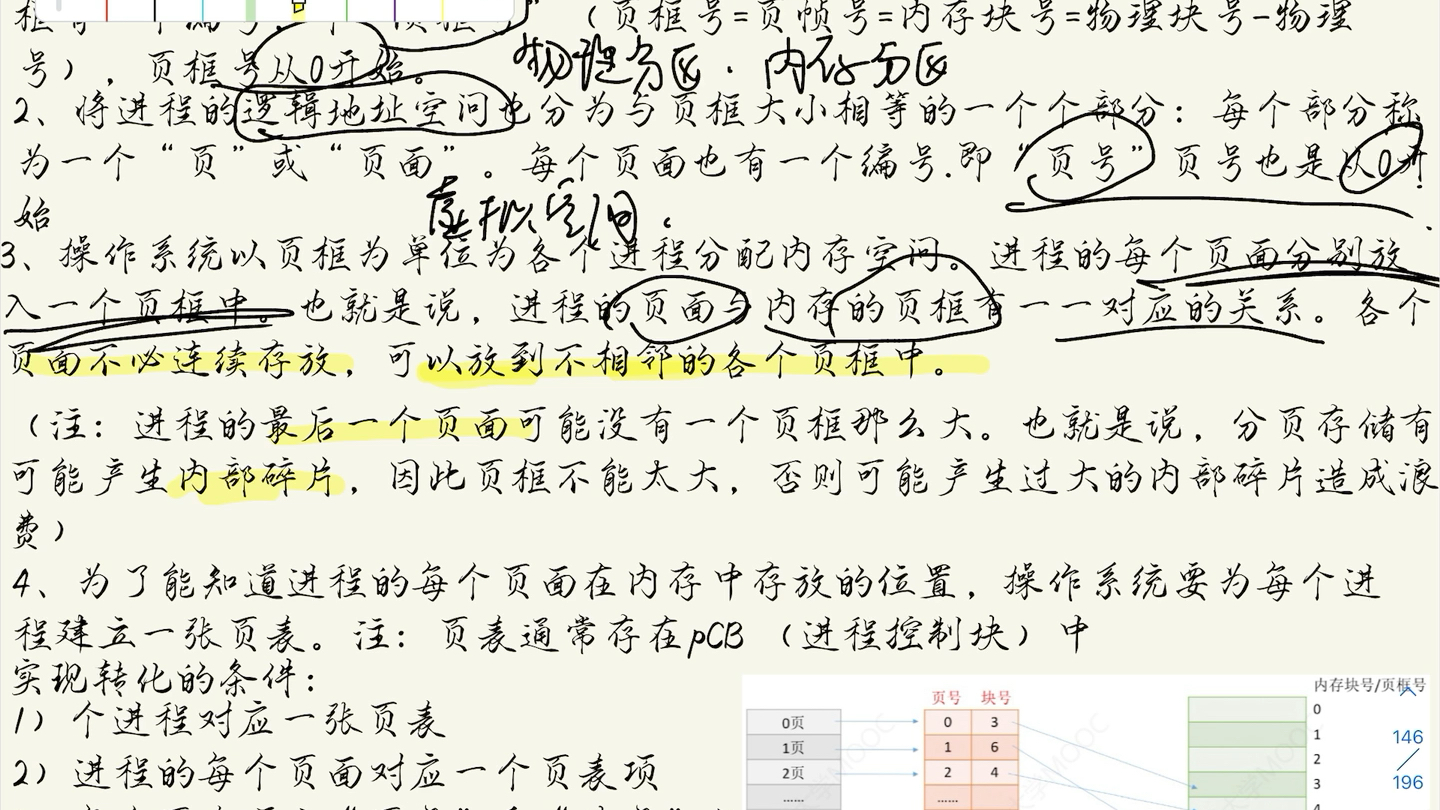 框有一个编号，
（页框号=页帧号=内存块号=物理块号-物理
号），页框号从0开始。
物理分区．内存分区
2、将进程的逻辑地址空间也分为与页框大小相等的一个个部分：每个部分称
为一个“页”或“页面”。每个页面也有一个编号.即“页号”页号也是从0开
始
虚拟空间．
3、操作系统以页框为单位为各个进程分配内存空间。进程的每个页面分别放
入一个页框中。也就是说，进程的页面与内存的页框有一一对应的关系。各个
页面不必连续存放，可以放到不相邻的各个页框中。
（注：进程的最后一个页面可能没有一个页框那么大。也就是说，分页存储有
可能产生内部碎片，因此页框不能太大，否则可能产生过大的内部碎片造成浪
费）
4、为了能知道进程的每个页面在内存中存放的位置，操作系统要为每个进
程建立一张页表。注：页表通常存在pCB（进程控制块）中
实现转化的条件：
1）个进程对应一张页表
2）进程的每个页面对应一个页表项
页号 块号
内存块号/页框号
0页 0 3
0
1页 1 6
1
2页 2 4
2
...... ......
3
4
146
196